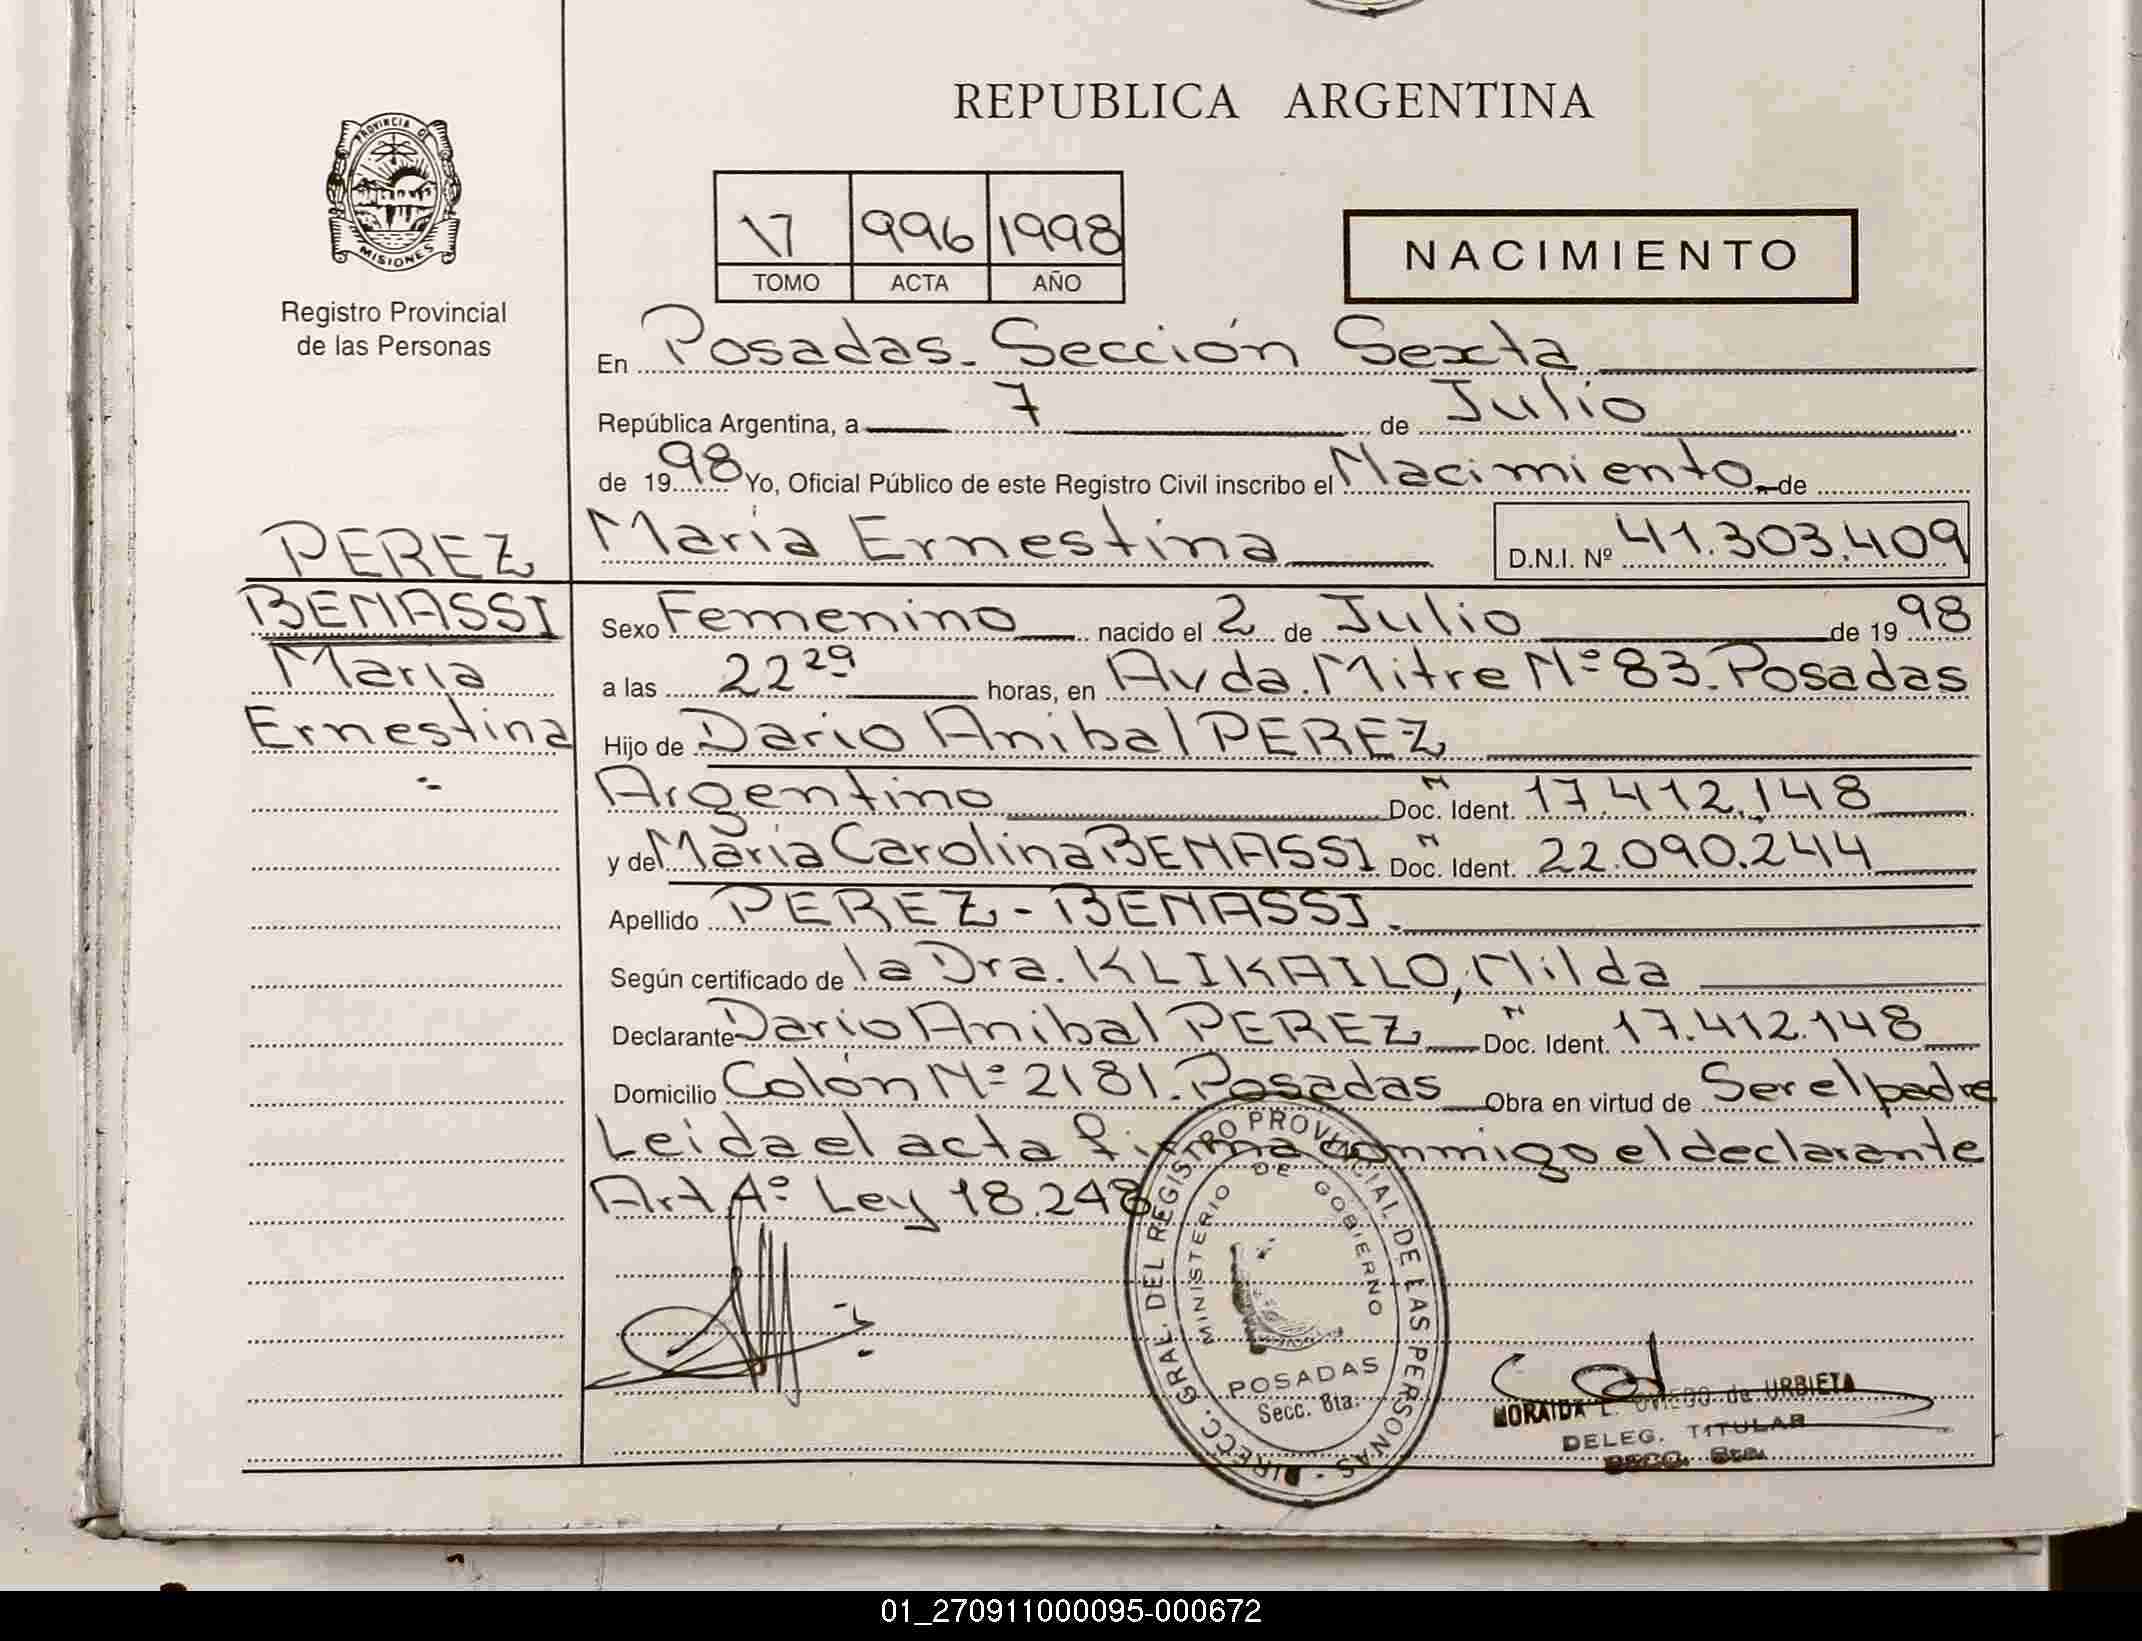 REPUBLICA ARGENTINA
PROVINCIA DE
MISIONES
Registro Provincial
de las Personas
17 996 1998
TOMO ACTA AÑO
NACIMIENTO
En Posadas. Sección Sexta
República Argentina, a 7 de Julio
de 1998 Yo, Oficial Público de este Registro Civil inscribo el Nacimiento de
María Ernestina D.N.I. Nº 41.303.409
PEREZ
BENASSI
María
Ernestina
Sexo Femenino nacido el 2 de Julio de 1998
a las 22 29 horas, en Avda. Mitre Nº 83. Posadas
Hijo de Dario Anibal PEREZ
Argentino Doc. N Ident. 17.412.148
y de María Carolina BENASSI Doc. N Ident. 22.090.244
Apellido PEREZ - BENASSI.
Según certificado de la Dra. KLIKAILO, Nilda
Declarante Dario Anibal PEREZ Doc. N Ident. 17.412.148
Domicilio Colón Nº 2181. Posadas Obra en virtud de Ser el padre
Leida el acta firma conmigo el declarante
Art 4º Ley 18.248
DIRECC. GRAL. DEL REGISTRO PROVINCIAL DE LAS PERSONAS
MINISTERIO DE GOBIERNO
POSADAS
Secc. 6ta.
NORAIDA E. OVIEDO de URBIETA
DELEG. TITULAR
SECC. 6ta.
01_270911000095-000672